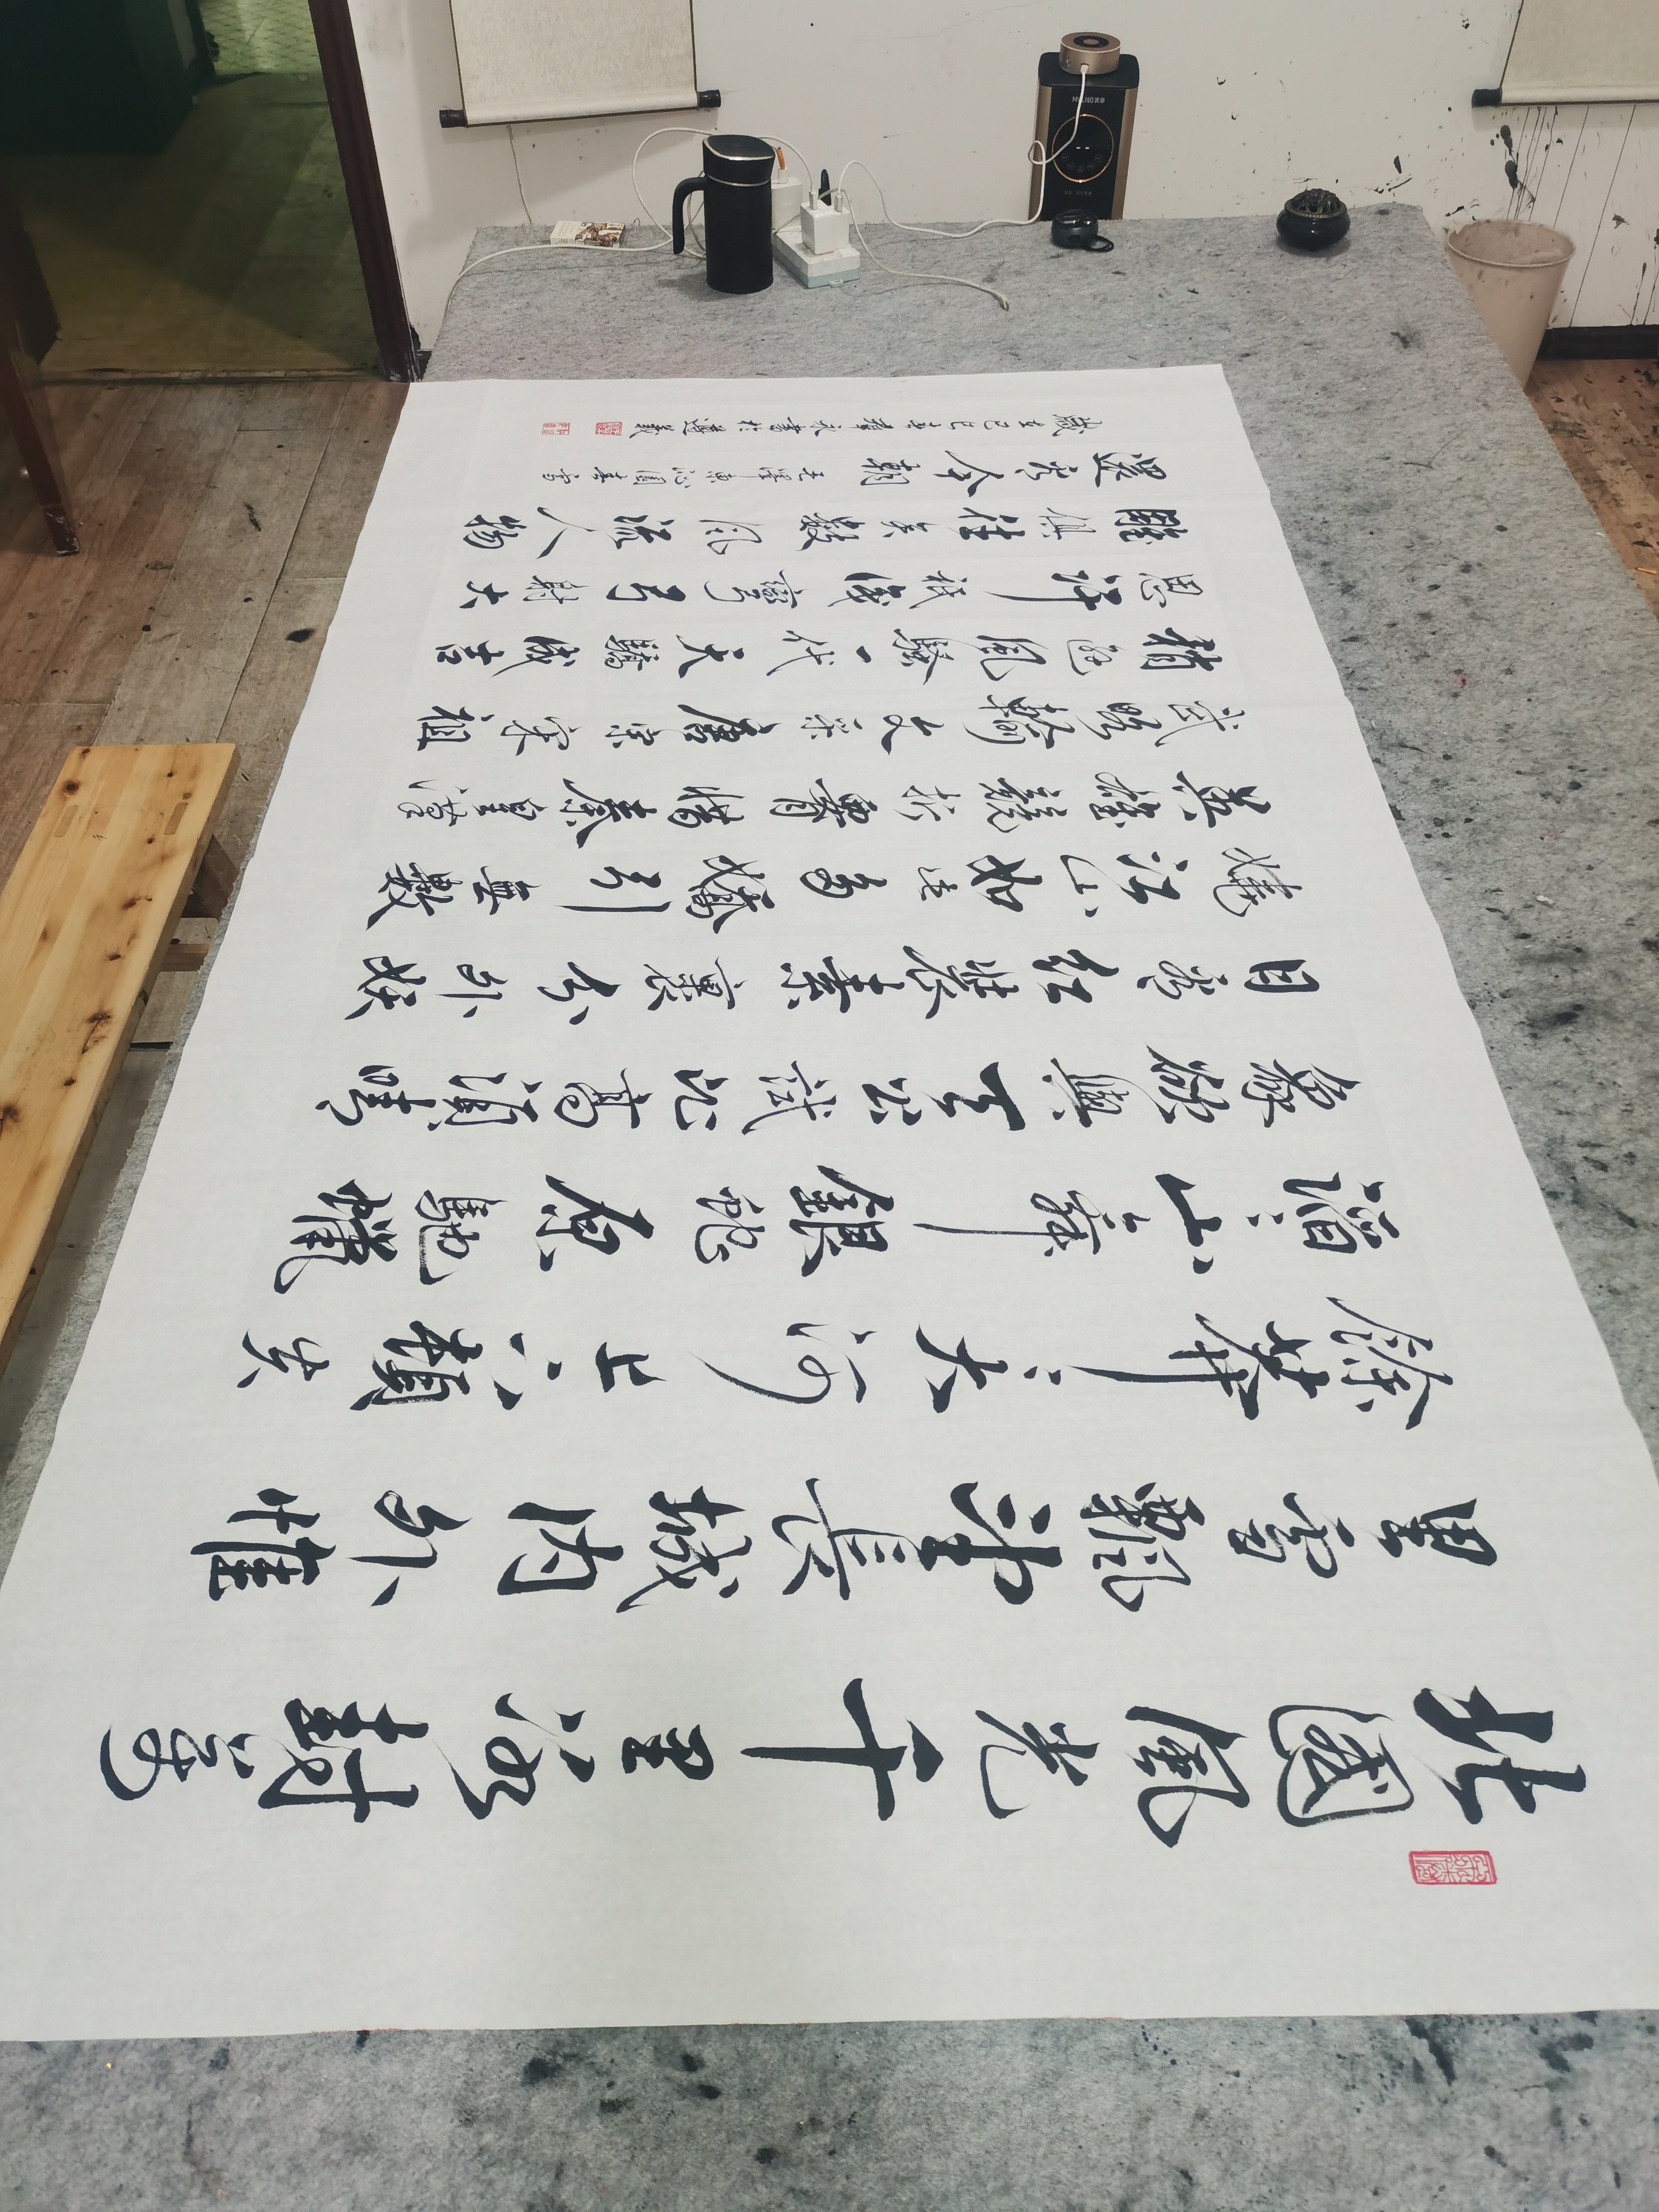 北國風光千里冰封萬
里雪飄望長城內外惟
餘莽々大河上下頓失
滔々山舞銀蛇原馳蠟
象欲與天公試比高須晴
日看紅裝素裹分外妖
嬈江山如此多嬌引無數
英雄競折腰惜秦皇漢
武略輸文采唐宗宋祖
稍遜風騷一代天驕成吉
思汗祇識彎弓射大
雕俱往矣數風流人物
還看今朝 毛澤東沁園春雪
歲在乙巳 書於遵義